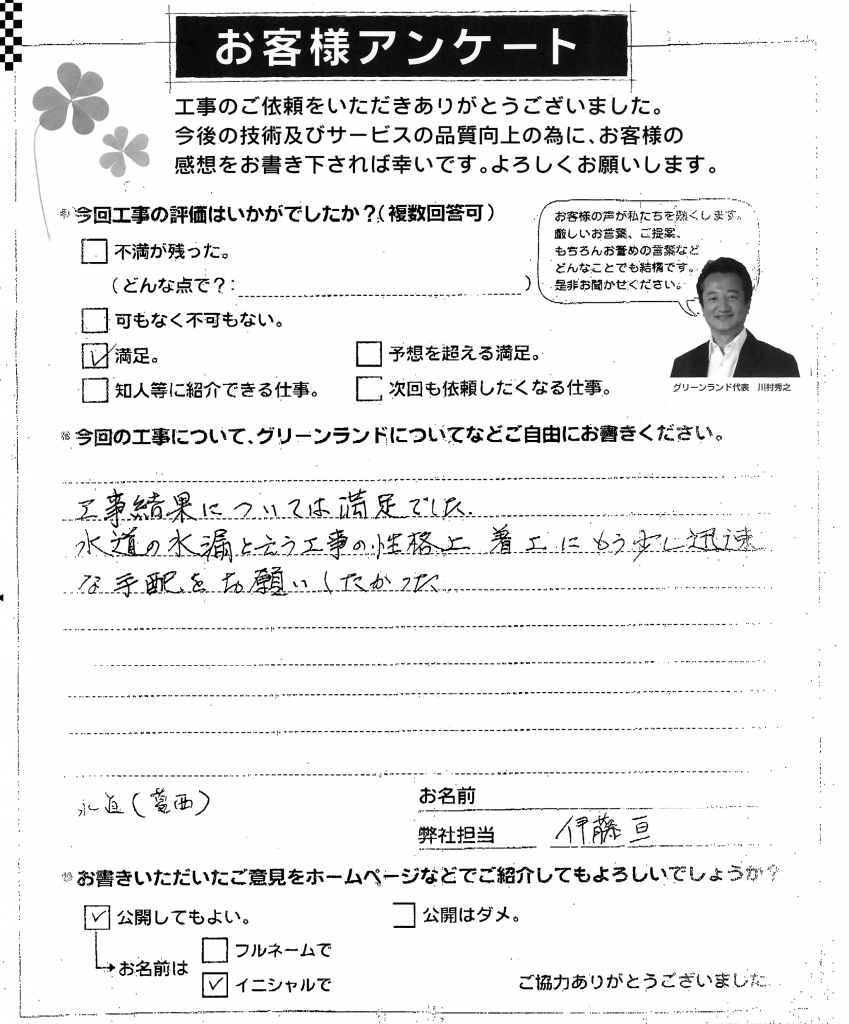 お客様アンケート
工事のご依頼をいただきありがとうございました。
今後の技術及びサービスの品質向上の為に、お客様の
感想をお書き下されば幸いです。よろしくお願いします。
今回工事の評価はいかがでしたか？（複数回答可）
お客様の声が私たちを熱くします。
厳しいお言葉、ご提案、
もちろんお誉めの言葉など
どんなことでも結構です。
是非お聞かせください。
不満が残った。
（どんな点で？： ）
可もなく不可もない。
満足。
予想を超える満足。
知人等に紹介できる仕事。
次回も依頼したくなる仕事。
グリーンランド代表 川村秀之
今回の工事について、グリーンランドについてなどご自由にお書きください。
工事結果については満足でした.
水道の水漏と云う工事の性格上 着工にもう少し迅速
な手配をお願いしたかった.
水道（葛西）
お名前
弊社担当 伊藤亘
お書きいただいたご意見をホームページなどでご紹介してもよろしいでしょうか？
公開してもよい。
公開はダメ。
お名前は
フルネームで
イニシャルで
ご協力ありがとうございました